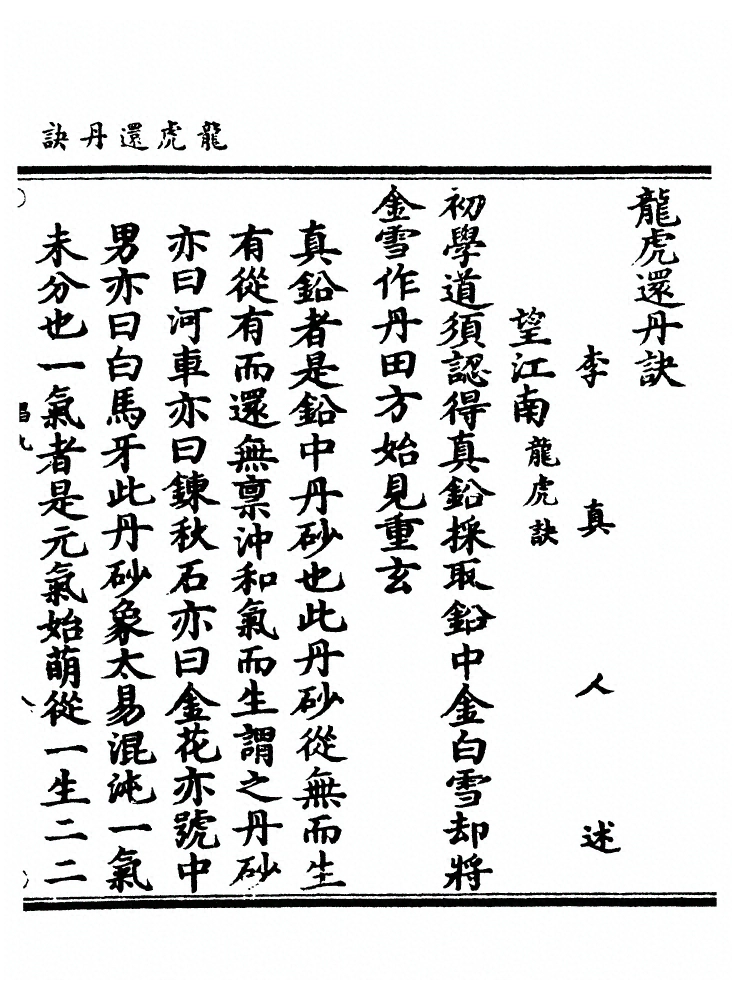 龍虎還丹訣
龍虎還丹訣
李真人述
望江南龍虎訣
初學道須認得真鉛採取鉛中金白雪却將
金雪作丹田方始見重玄
真鉛者是鉛中丹砂也此丹砂從無而生
有從有而還無禀沖和氣而生謂之丹砂
亦曰河車亦曰鍊秋石亦曰金花亦號中
男亦曰白馬牙此丹砂象太易混沌一氣
未分也一氣者是元氣始萌從一生二二